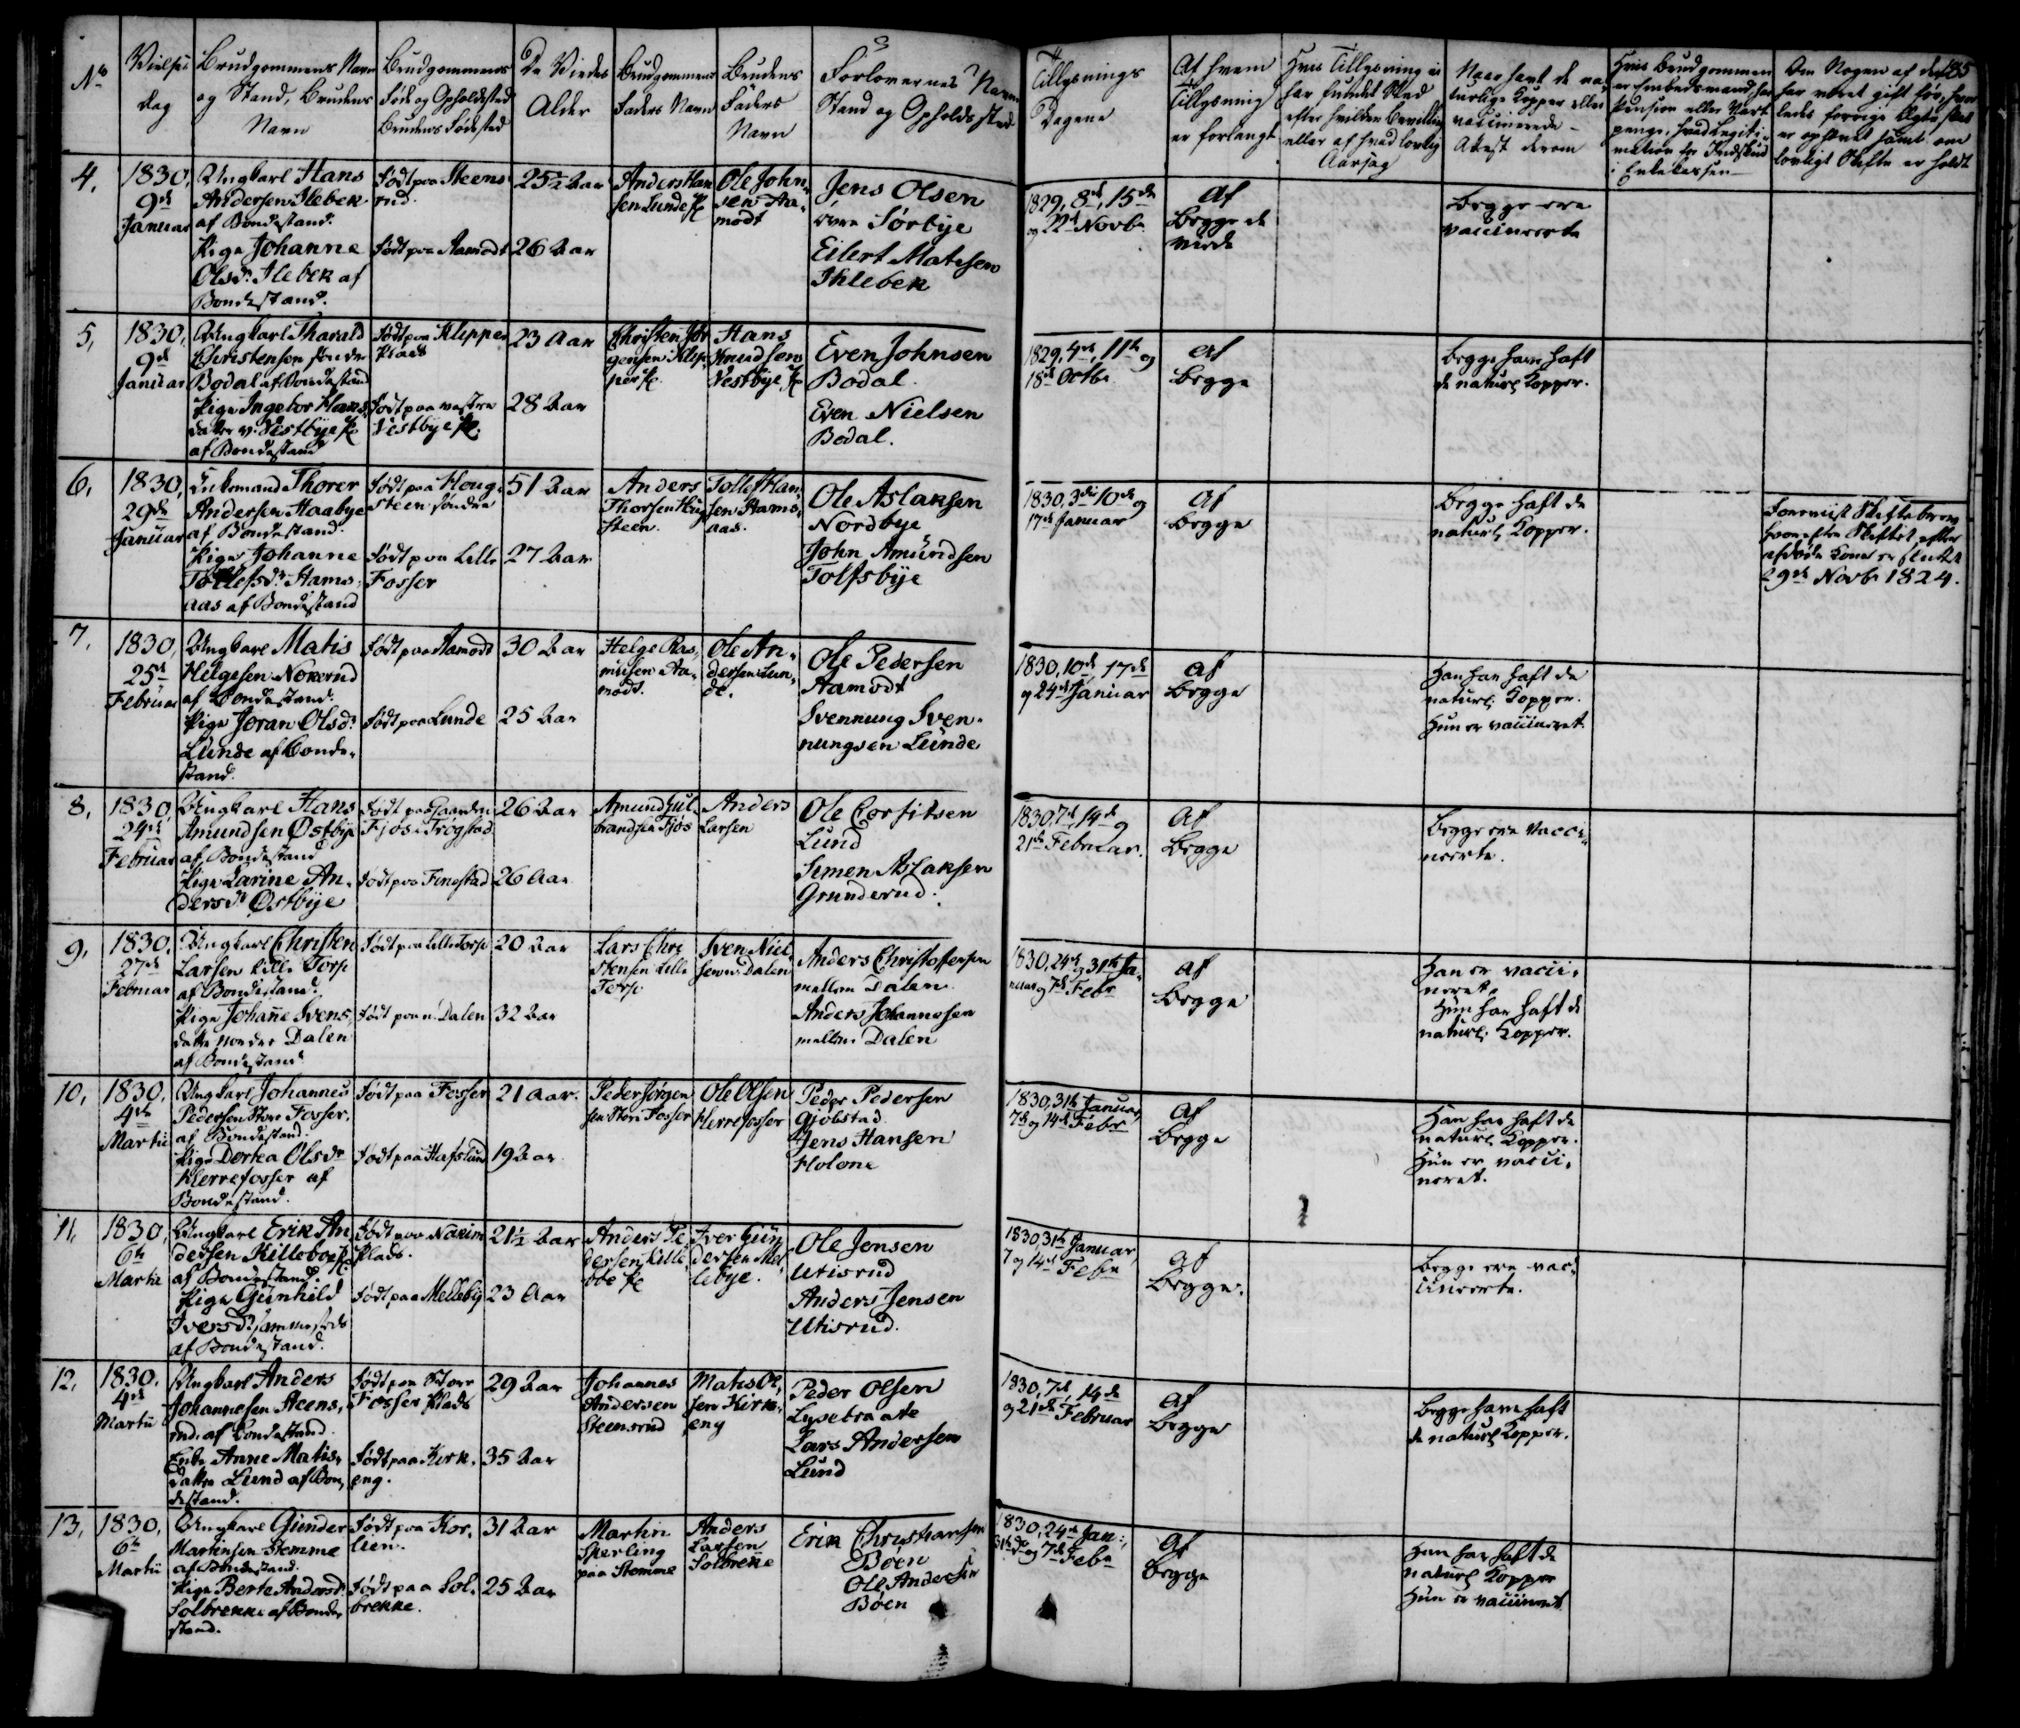 No
Vielses
dag
Brudgommens Navn
og Stand, Brudens
Navn
Brudgommens
Føde og Opholdssted
Brudens Fødested
De Viedes
Alder
Brudgommens
Faders Navn
Brudens
Faders
Navn
Forlovernes Navn
Stand og Opholdssted
Tillysnings
Dagene
Af hvem
Tillysning
er forlangt
Hvis Tillysning ei
har fundet Sted
efter hvilken Bevilling
eller af hvad lovlig
Aarsag
Naar havt de na-
turlige Kopper eller
vaccinerede -
Attest derom
Hvis Brudgommen
er Embedsmand, har
Pension eller Vart-
penge, hvad Legiti-
mation for Indskud
i Enkekassen
Om Nogen af dem
har været gift før, hvor-
ledes forrige Ægteskab
er ophævet samt om
lovligt Skifte er holdt
185
4.
1830,
9de
Januar
Ungkarl Hans
Andersen Ilebek
af Bondestand.
Pige Johanne
Olsdr. Ilebek af
Bondestand.
Født paa Steens-
rud.
Født paa Aamodt
25½ Aar
26 Aar
Anders Han
sen Lunde Pl
Ole John-
sen Aa-
modt
Jens Olsen
øvre Sørbye
Eilert Matisen
Ihlebek
1829, 8de, 15de
og 22de Novbr
Af
Begge de
viede
Begge ere
vaccineerte
5,
1830,
9de
Januar
Ungkarl Tharald
Christensen søndre
Bodal af Bondestand
Pige Ingebor Hans-
datter v. Vestbye Pl
af Bondestand
Født paa Klepper
Plads
Født paa vestre
Vestbye Pl.
23 Aar
28 Aar
Christen Jør
gensen Klep-
per Pl.
Hans
Amundsen
Vestbye Pl
Even Johnsen
Bodal.
Even Nielsen
Bodal.
1829, 4de, 11te og
18de Octbr
af
Begge
Begge have haft
de naturl Kopper.
6,
1830,
29de
Januar
Enkemand Thorer
Andersen Haabye
af Bondestand.
Pige Johanne
Tollefsdr. Hams-
aas af Bondestand
Født paa Houg-
steen søndre
Født paa Lille
Fosser
51 Aar
27 Aar
Anders
Thorsen Houg
steen.
Tollef Han-
sen Hams-
aas.
Ole Aslaksen
Nordbye
John Amundsen
Tolfsbye
1830, 3die 10de og
17de Januar
af
Begge
Begge haft de
naturl. Kopper.
Foreviist Skiftebrev
hvorefter Skiftet efter
afdøde Kone er sluttet
29de Novbr 1824.
7,
1830,
25de
Februar
Ungkarl Matis
Helgesen Nokerud
af Bondestand.
Pige Joran Olsdr.
Lunde af Bonde-
stand.
Født paa Aamodt
Født paa Lunde
30 Aar
25 Aar
Helge Ras-
musen Aa-
modt.
Ole An-
dersen Lun-
de.
Ole Pedersen
Aamodt
Svennung Sven-
nungsen Lunde
1830, 10de, 17de
og 24de Januar
af
Begge
Han har haft de
naturl: Kopper.
Hun er vaccineret.
8,
1830,
24de
Februar
Ungkarl Hans
Amundsen Østbye
af Bondestand
Pige Karine An-
dersdr Østbye
Født paa Gaarden
Fjøs i Trøgstad
Født paa Finestad
26 Aar
26 Aar
Amund Gul
brandsen Fjøs
Anders
Larsen
Ole Corfitsen
Lund
Simen Aslaksen
Grunderud.
1830, 7de, 14de og
21de Februar.
Af
Begge
Begge ere vacci-
neerte.
9,
1830,
27de
Februar
Ungkarl Christen
Larsen Lille Torp
af Bondestand.
Pige Johanne Svens-
datter nordre Dalen
af Bondestand
Født paa Lille Torp
Født paa n. Dalen
20 Aar
32 Aar
Lars Chri
stensen Lille
Torp
Sven Niel-
sen n. Dalen
Anders Christofersen
mellem Dalen
Anders Johannesen
mellem Dalen
1830, 24de og 31te Ja-
nuar og 7de Febr
af
Begge
Han er vacci-
neret.
Hun har haft de
naturl: Kopper.
10,
1830,
4de
Martii
Ungkarl Johannes
Pedersen Store Fosser,
af Bondestand.
Pige Dortea Olsdr
Herrefosser af
Bondestand.
Født paa Fosser
Født paa Hafslund
21 Aar.
19 Aar
Peder Jørgen
sen Store Fosser
Ole Olsen
Herrefosser
Peder Pedersen
Gjølstad
Jens Hansen
Holone
1830, 31te Januar,
7de og 14de Febr
Af
Begge
Han har haft de
naturl. Kopper.
Hun er vacci-
neret.
11,
1830,
6te
Martii
Ungkarl Erik An
dersen Killeboe Pl
af Bondestand.
Pige Gunhild
Iversdr. sammesteds
af Bondestand.
Født paa
Plads.
Født paa Mellebÿ
21½ Aar
23 Aar
Anders Pe
dersen Kille-
boe Pl
Iver Gun
dersen Mel-
lebye.
Ole Jensen
Utisrud
Anders Jensen
Utisrud.
1830, 31te Januar,
7 og 14de Febr
af
Begge.
Begge ere vac-
cineerte.
12,
1830,
4de
Martii
Ungkarl Anders
Johannesen Steens-
rud. af Bondestand
Enke Anne Matis-
datter Lund af Bon-
destand.
Født paa Store
Fosser Plads
Født paa Kirk-
eng.
29 Aar
35 Aar
Johannes
Andersen
Steensrud
Matis Ol-
sen Kirk-
eng
Peder Olsen
Lysebraate
Lars Andersen
Lund
1830, 7de, 14de
og 21de Februar
Af
Begge
Begge have haft
de naturl Kopper.
13,
1830,
6te
Martii
Ungkarl Gunder
Martinsen Stemme
af Bondestand.
Pige Berte Andersdr.
Solbrekke af Bonde-
stand.
Født paa Kor-
lien.
Født paa Sol-
brekke.
31 Aar
25 Aar
Martin
Sperling
paa Stemme
Anders
Larsen
Solbrekke
Erik Christiansen
Boen
Ole Andersen
Boen
1830, 24de Jan:,
31te do og 7de Febr
Af
Begge
Han har haft de
naturl Kopper
Hun er vaccineret